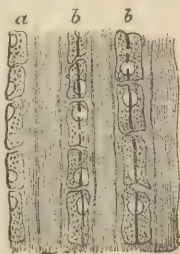 a b b